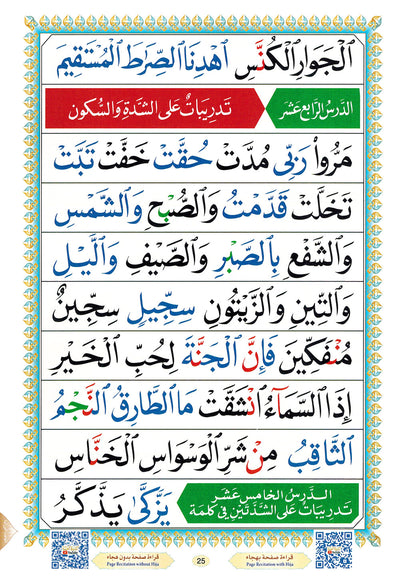 ٱلْجَوَارِ ٱلْكُنَّسِ ٱهْدِنَا ٱلصِّرَٰطَ ٱلْمُسْتَقِيمَ
الدَّرْسُ الرَّابِعُ عَشَرَ تَدرِيبَاتٌ عَلَى الشَّدَّةِ وَالسُّكُون
مَرُّوا۟ رَبِّى مُدَّتْ حُقَّتْ خَفَّتْ تَبَّتْ
تَخَلَّتْ قَدَّمَتْ وَٱلصُّبْحِ وَٱلشَّمْسِ
وَٱلشَّفْعِ بِٱلصَّبْرِ وَٱلصَّيْفِ وَٱلَّيْلِ
وَٱلتِّينِ وَٱلزَّيْتُونِ سِجِّيلٍ سِجِّينٌ
مُنفَكِّينَ فَإِنَّ ٱلْجَنَّةَ لِحُبِّ ٱلْخَيْرِ
إِذَا ٱلسَّمَآءُ ٱنشَقَّتْ مَا ٱلطَّارِقُ ٱلنَّجْمُ
ٱلثَّاقِبُ مِن شَرِّ ٱلْوَسْوَاسِ ٱلْخَنَّاسِ
الدَّرْسُ الخَامِس عَشَر
تَدرِيبَات عَلَى الشَّدَّتَيْنِ فِي كَلِمَة
يَزَّكَّىٰ يَذَّكَّرُ
قراءة صفحة بدون هجاء
Page Recitation without Hija
25
قراءة صفحة بهجاء
Page Recitation with Hija